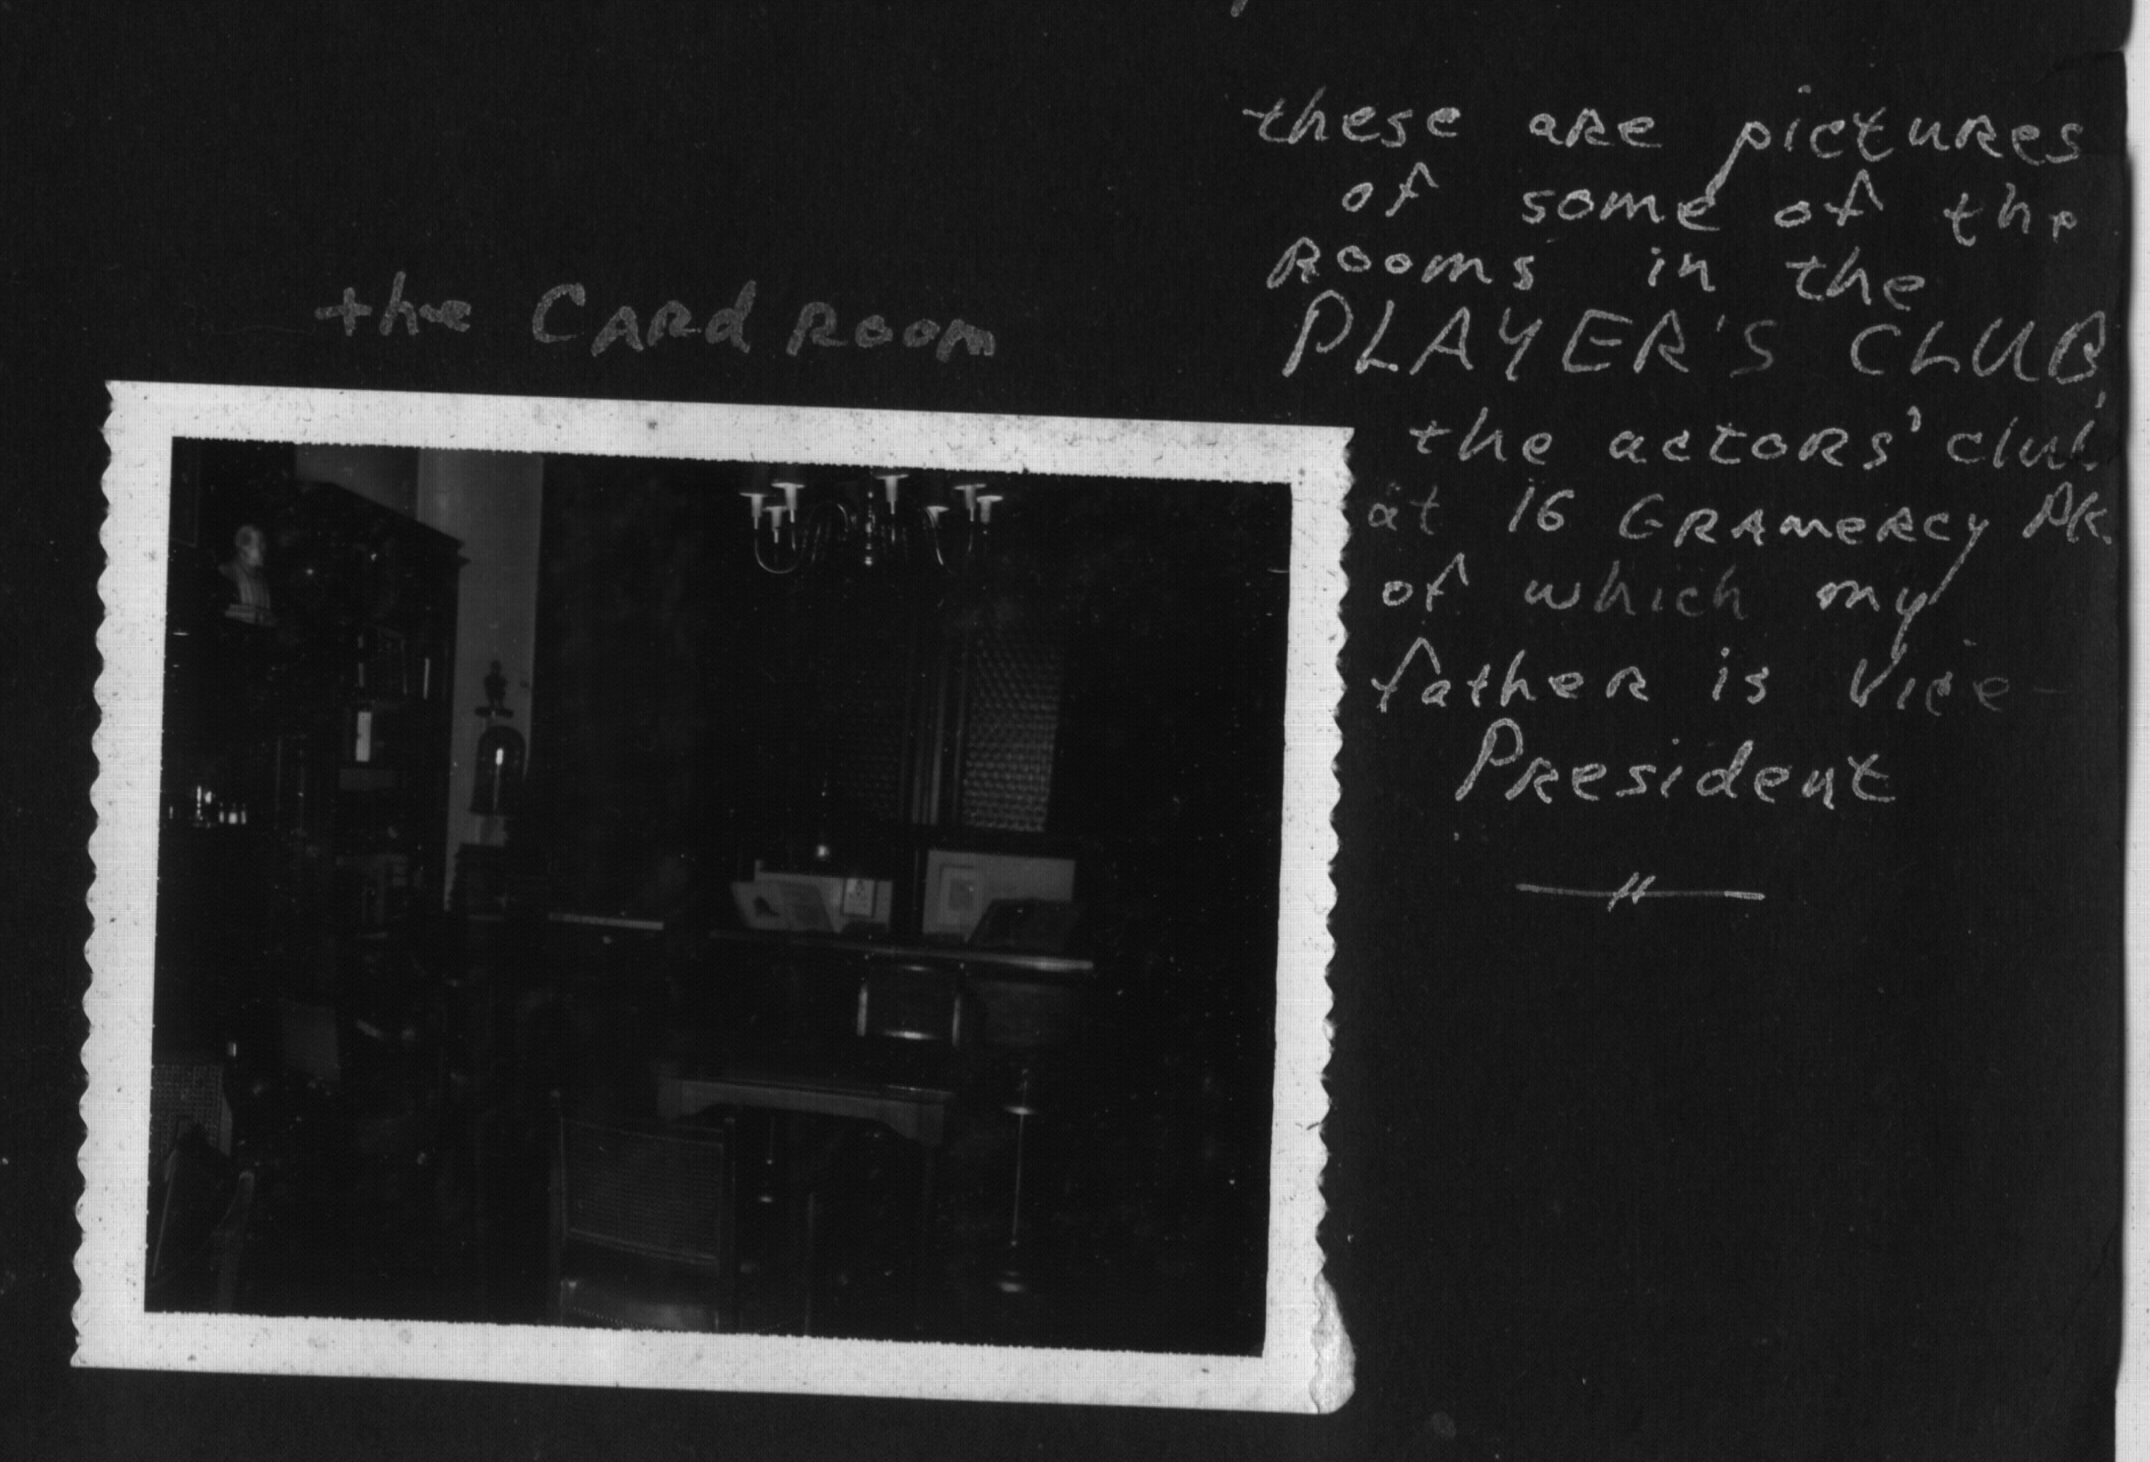 the CARd ROOM
these aRe pictuRes
of some of the
ROOMS in the
PLAYER'S CLUB,
the actoRs' club
at 16 GRAMERCY PK.
of which my
fatheR is Vice-
PResident